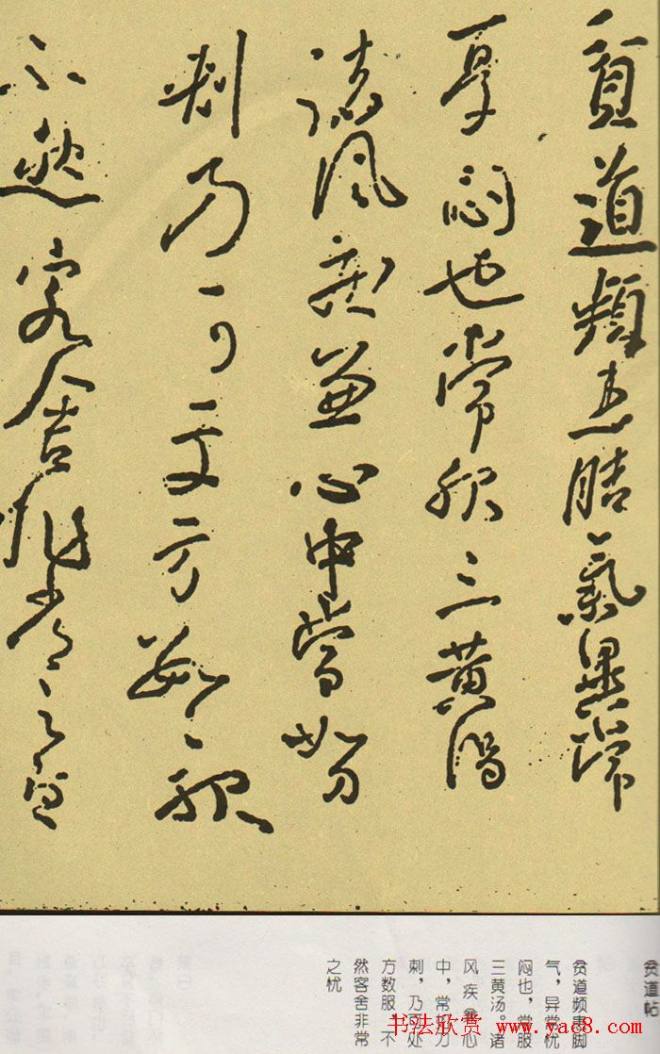 貧道頻患腳氣異常
憂悶也常服三黃湯
諸風疾兼心中常如刀
刺乃可處方數服
不然客舍非常之憂
贫道帖
贫道频患脚
气，异常忧
闷也，常服
三黄汤。诸
风疾兼心
中，常如刀
刺，乃可处
方数服，不
然客舍非常
之忧
书法欣赏 www.yac8.com